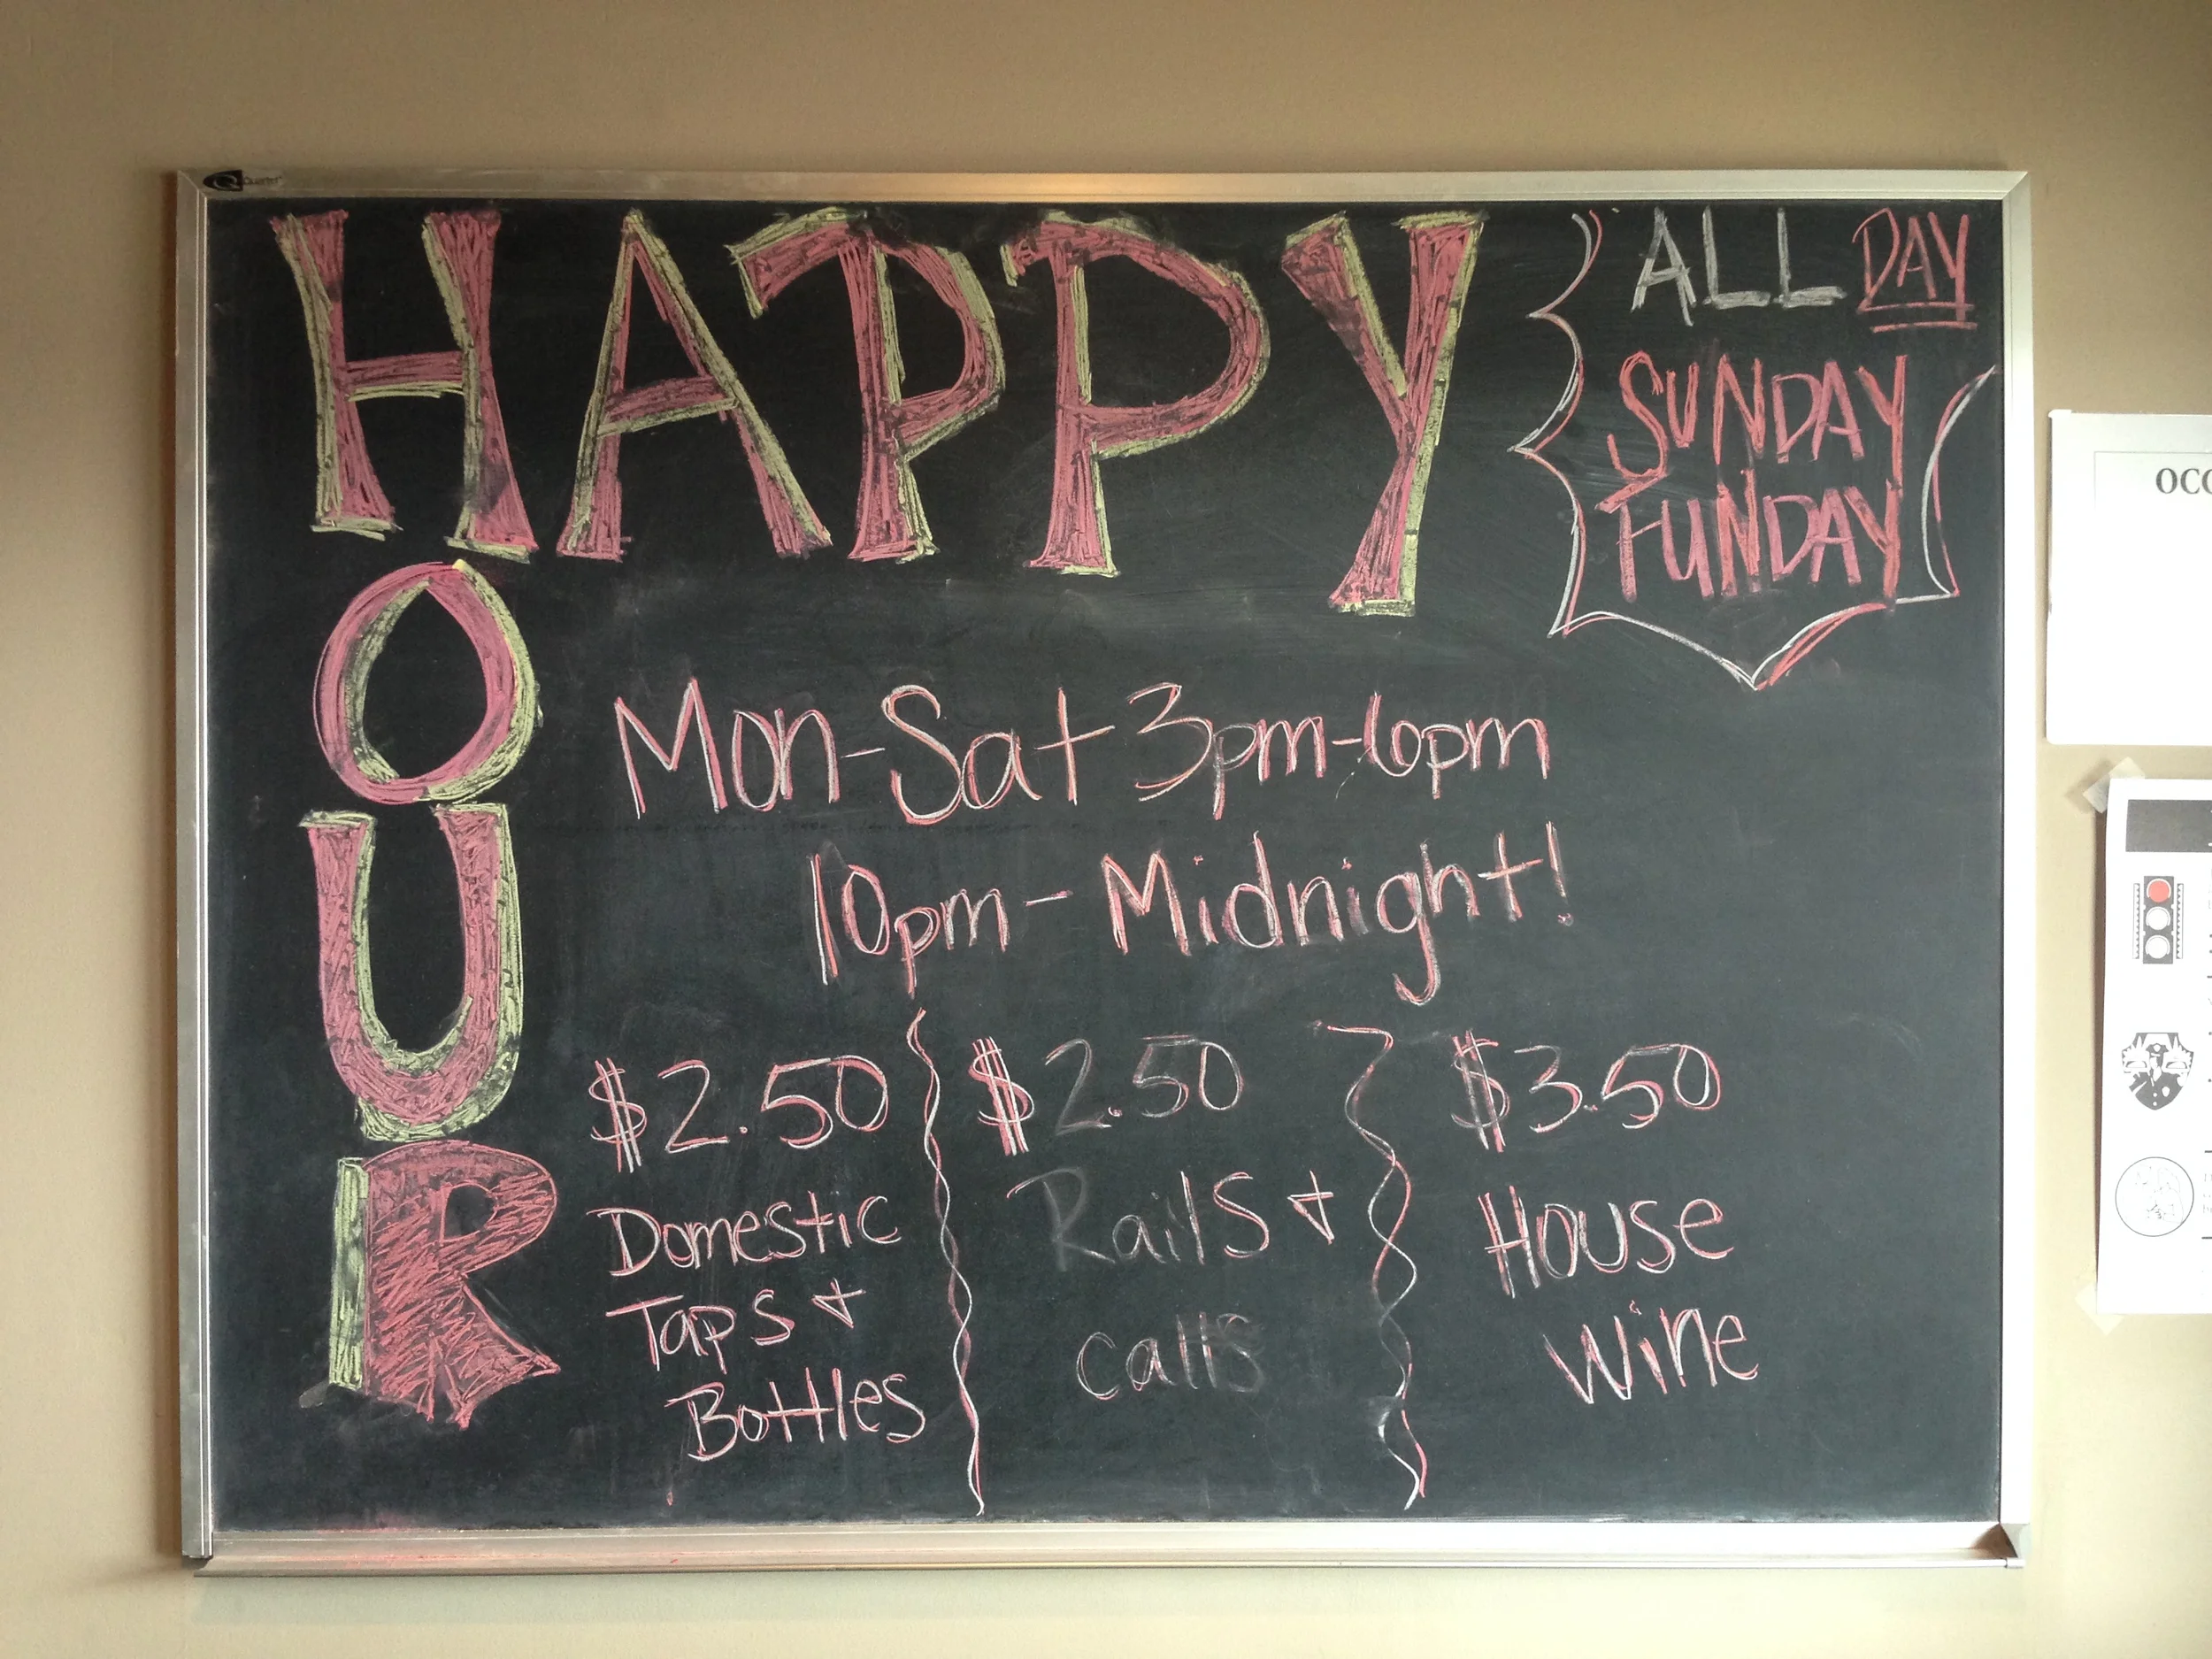 Quartet
HAPPY
HOUR
ALL DAY
SUNDAY
FUNDAY
Mon-Sat 3pm-6pm
10pm-Midnight!
$2.50
Domestic
Taps +
Bottles
$2.50
Rails +
calls
$3.50
House
Wine